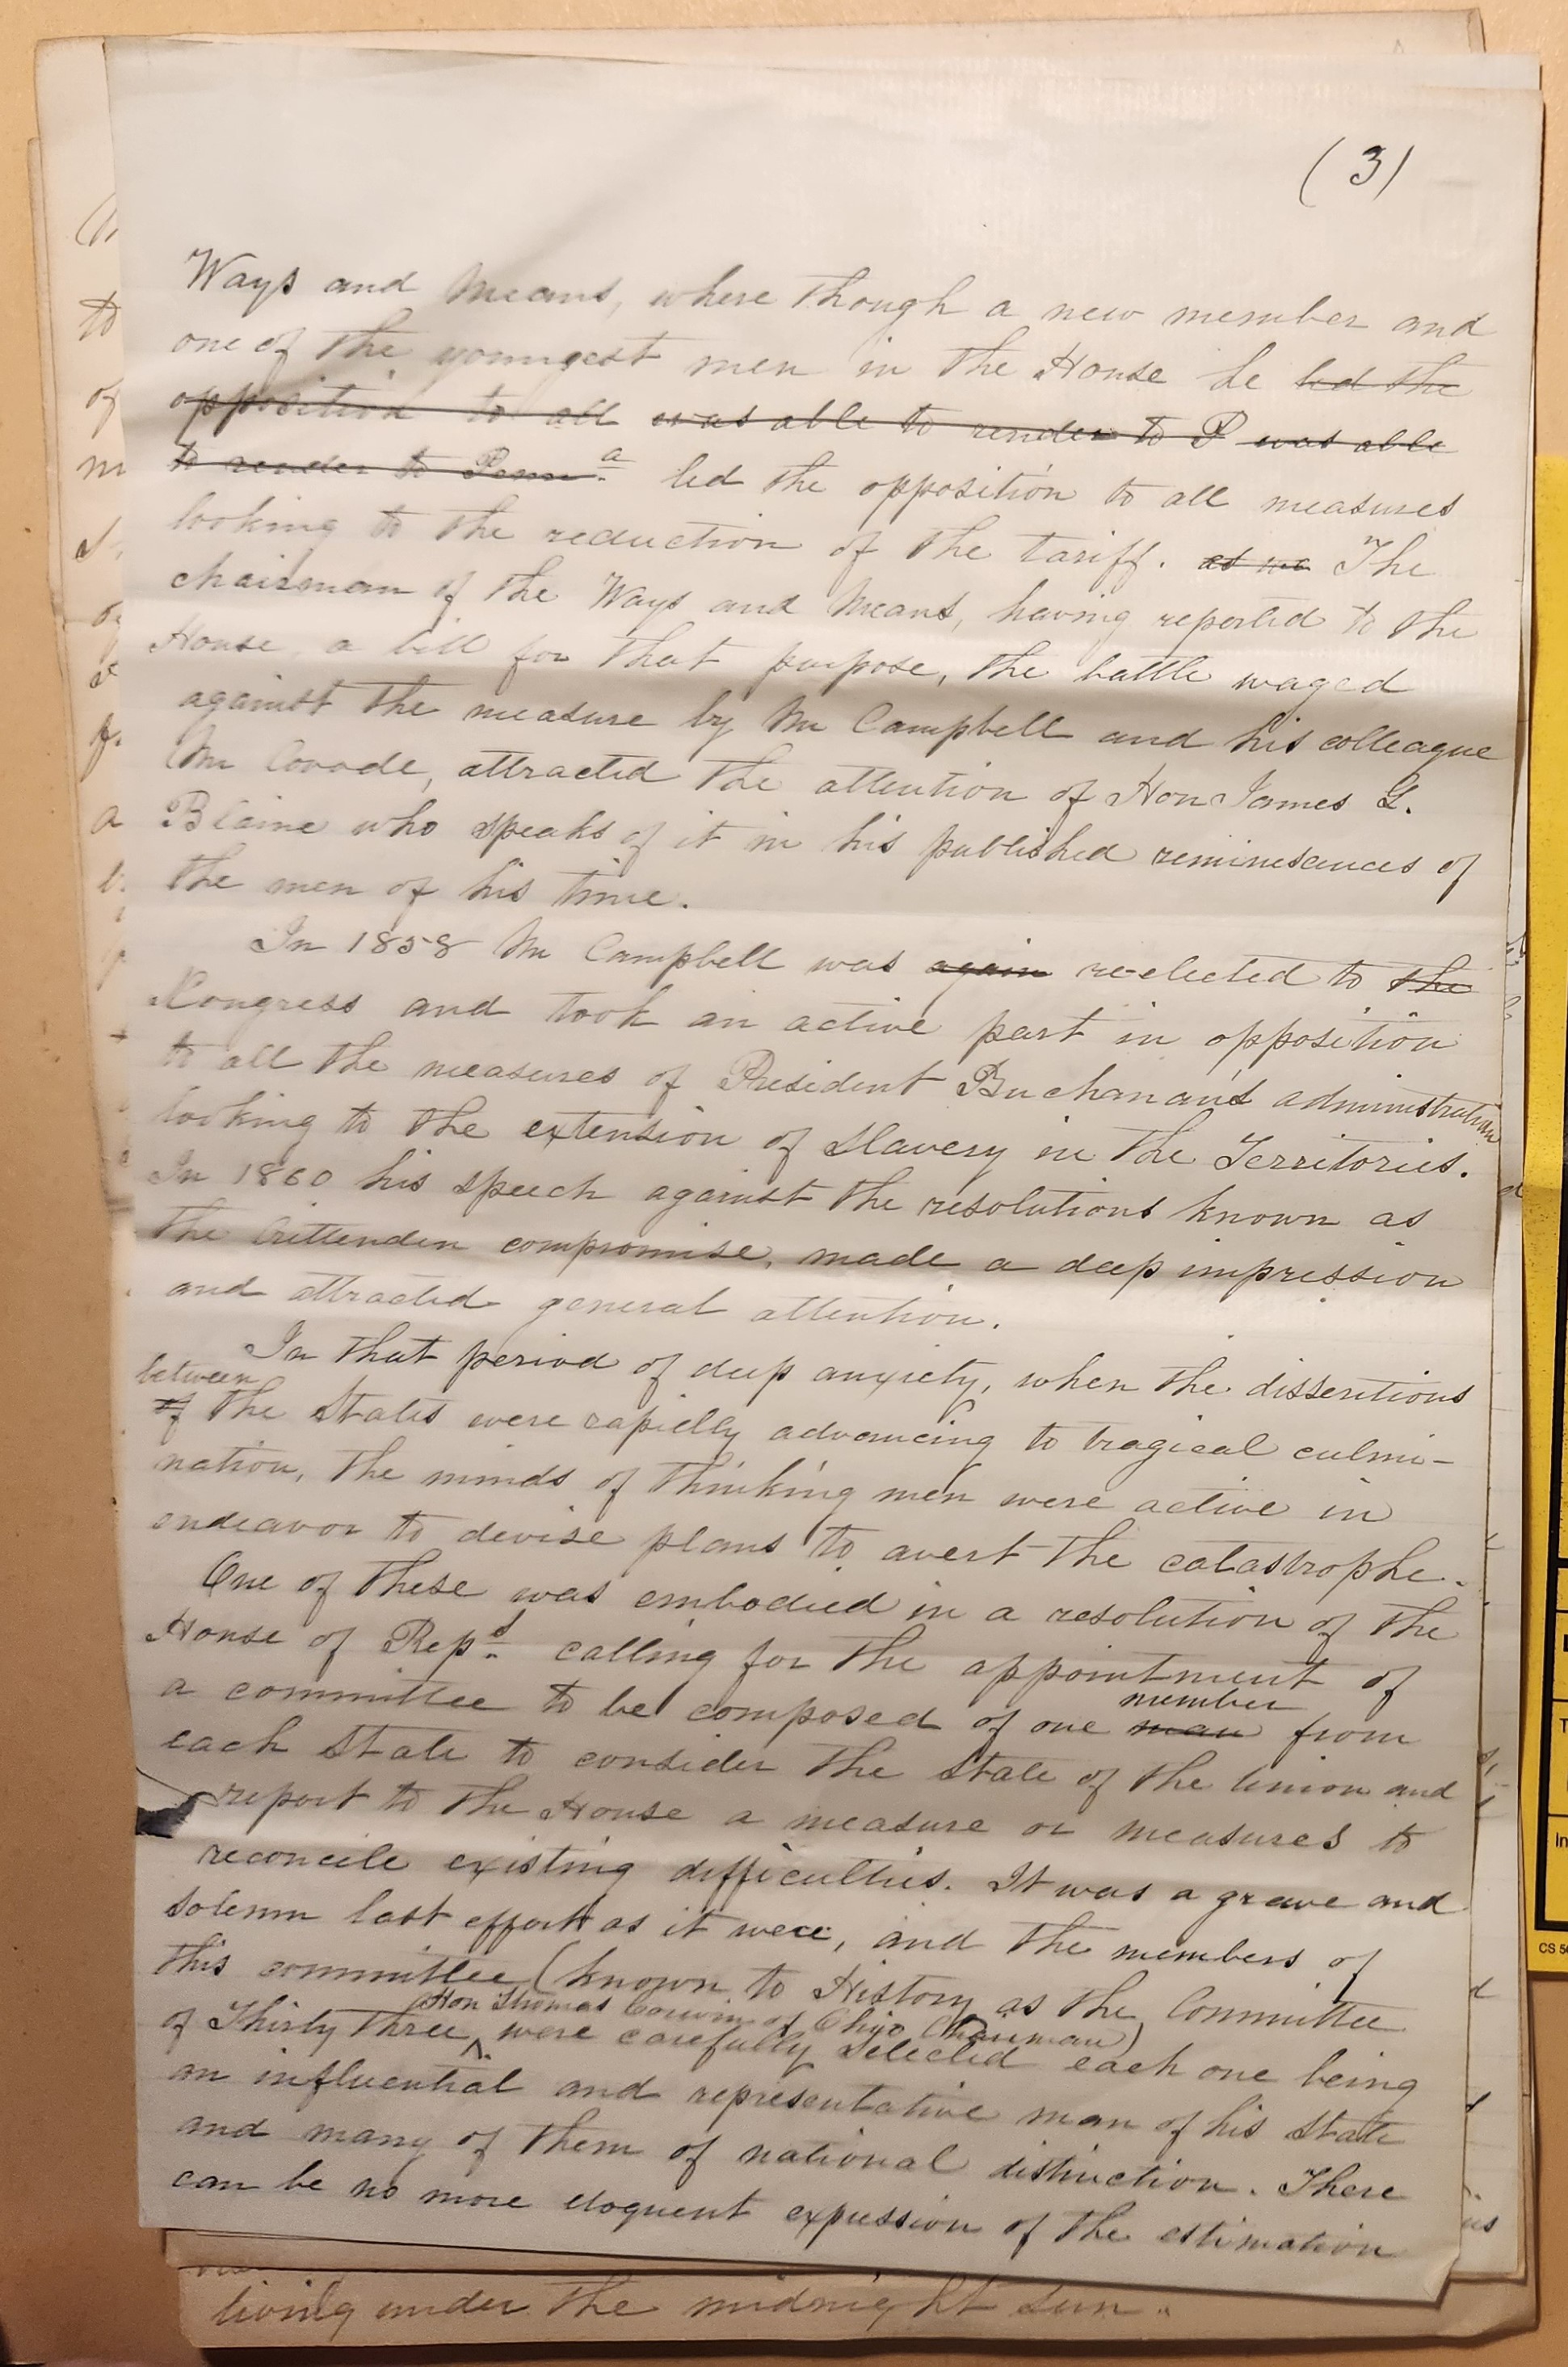 (3)
Ways and Means, where though a new member and
one of the youngest men in the House he led the
opposition to all was able to render to P was able
to render to Penna. led the opposition to all measures
looking to the reduction of the tariff. as we The
chairman of the Ways and Means, having reported to the
House, a bill for that purpose, the battle waged
against the measure by Mr Campbell and his colleague
Mr Covode, attracted the attention of Hon James G.
Blaine who speaks of it in his published reminescences of
the men of his time.
In 1858 Mr Campbell was again re-elected to the
Congress and took an active part in opposition
to all the measures of President Buchanan's administration
looking to the extension of Slavery in the Territories.
In 1860 his speech against the resolutions known as
the Crittenden compromise, made a deep impression
and attracted general attention.
In that period of deep anxiety, when the dissentions
between
of the States were rapidly advancing to tragical culmi-
nation, the minds of thinking men were active in
endeavor to devise plans to avert the catastrophe.
One of these was embodied in a resolution of the
House of Reps. calling for the appointment of
member
a committee to be composed of one man from
each State to consider the State of the Union and
report to the House a measure or measures to
reconcile existing difficulties. It was a grave and
solemn last effort as it were, and the members of
this committee (known to History as the Committee
Hon Thomas Corwin of Ohio Chairman)
of Thirty three were carefully selected each one being
an influential and representative man of his State
and many of them of national distinction. There
can be no more eloquent expression of the estimation
living under the midnight sun."